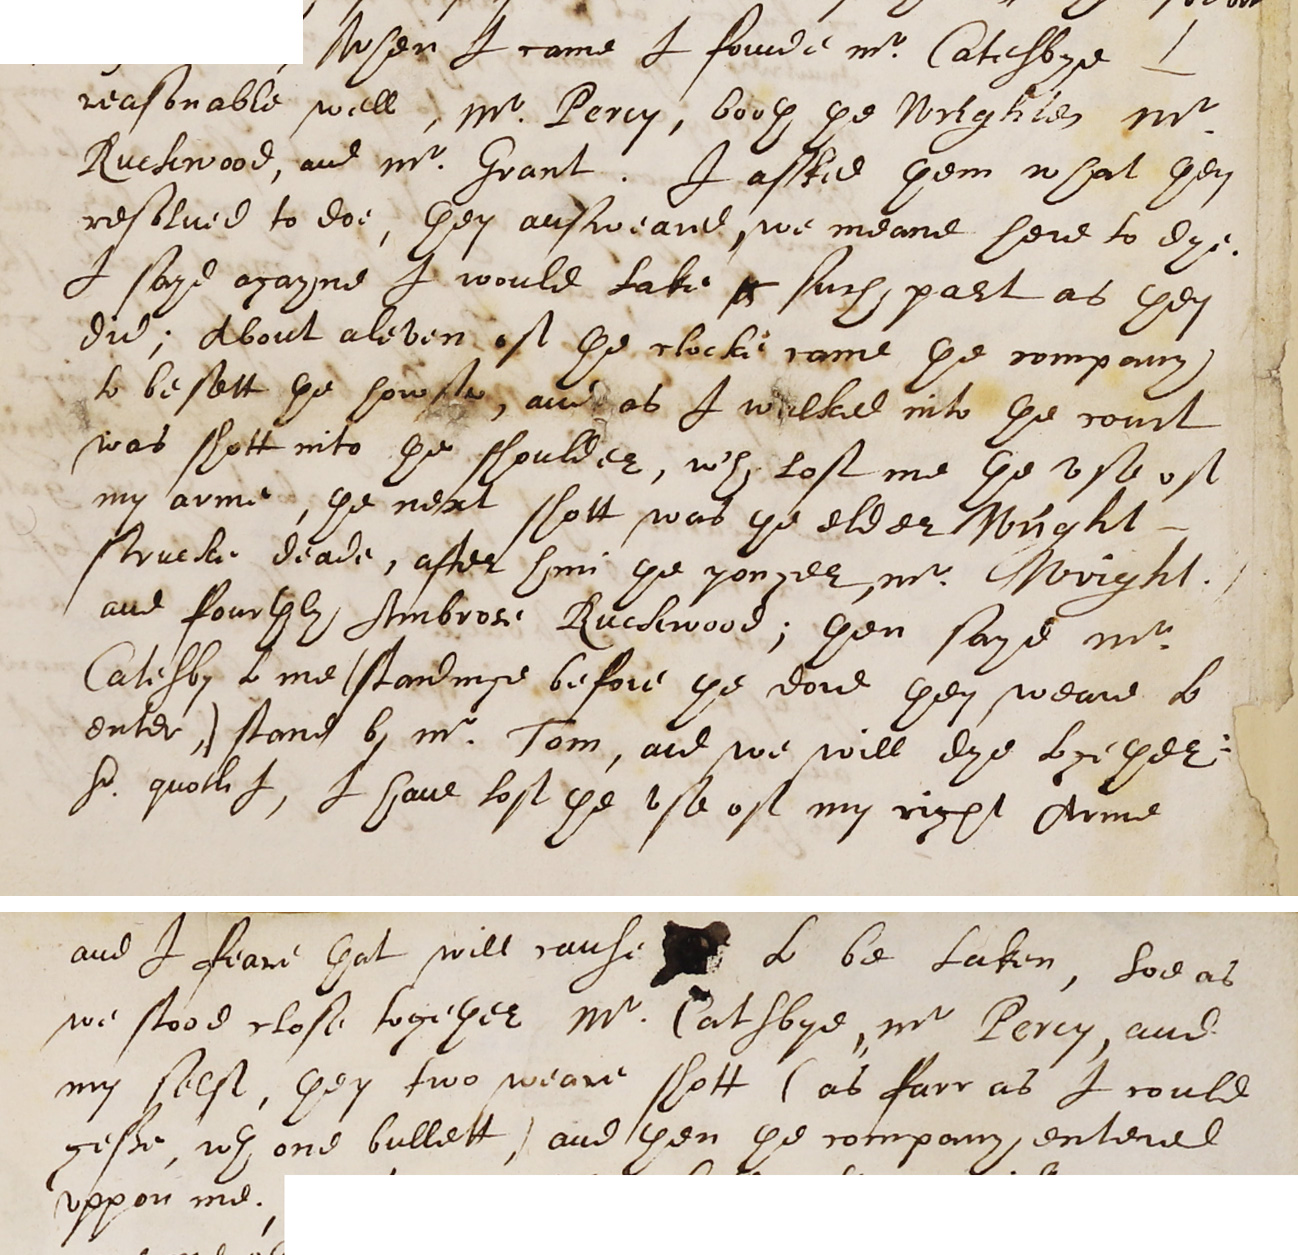 when I came I founde mr. Catesbye
reasonable well, Mr. Percy, booth ye Wrightes mr.
Ruckwood, and mr. Grant. I asked yem what yey
resolued to doe, yey answeared, we meane here to dye.
I sayd agayne I would take such part as yey
did; About aleven of ye clocke came ye company
to besett ye howse, and as I walked into ye court
was shott into ye shoulder, wch lost me ye vse of
my arme, ye next shott was ye elder Wright
strucke deade, after him ye yonger, mr. Wright.
and fourthly Ambrose Ruckwood; yen sayd mr.
Catesby to me (standinge before ye dore yey weare to
enter,) stand by mr. Tom, and we will dye togeyer:
Sr. quoth I, I haue lost ye vse of my right Arme
and I feare yat will cause to be taken, soe as
we stood close togeyer Mr. Catsbye, mr Percy, and
my self, yey two weare shott (as farr as I could
gesse, wth one bullett) and yen ye company entered
vppon me.